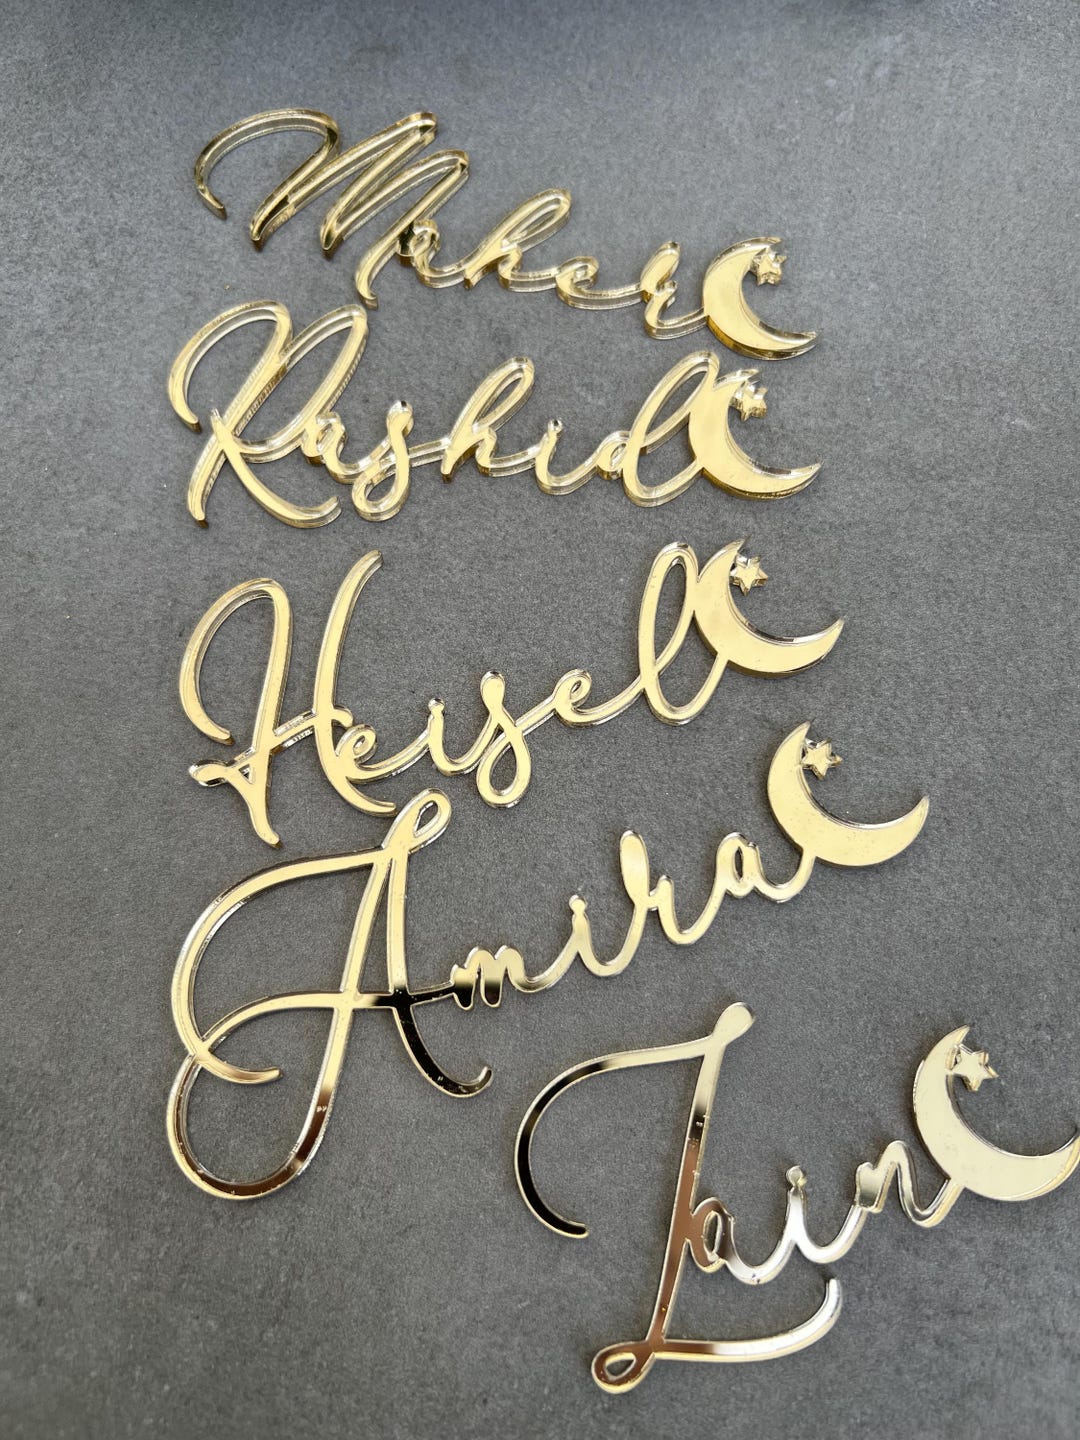 Maher
Rashid
Heisel
Amira
Zain